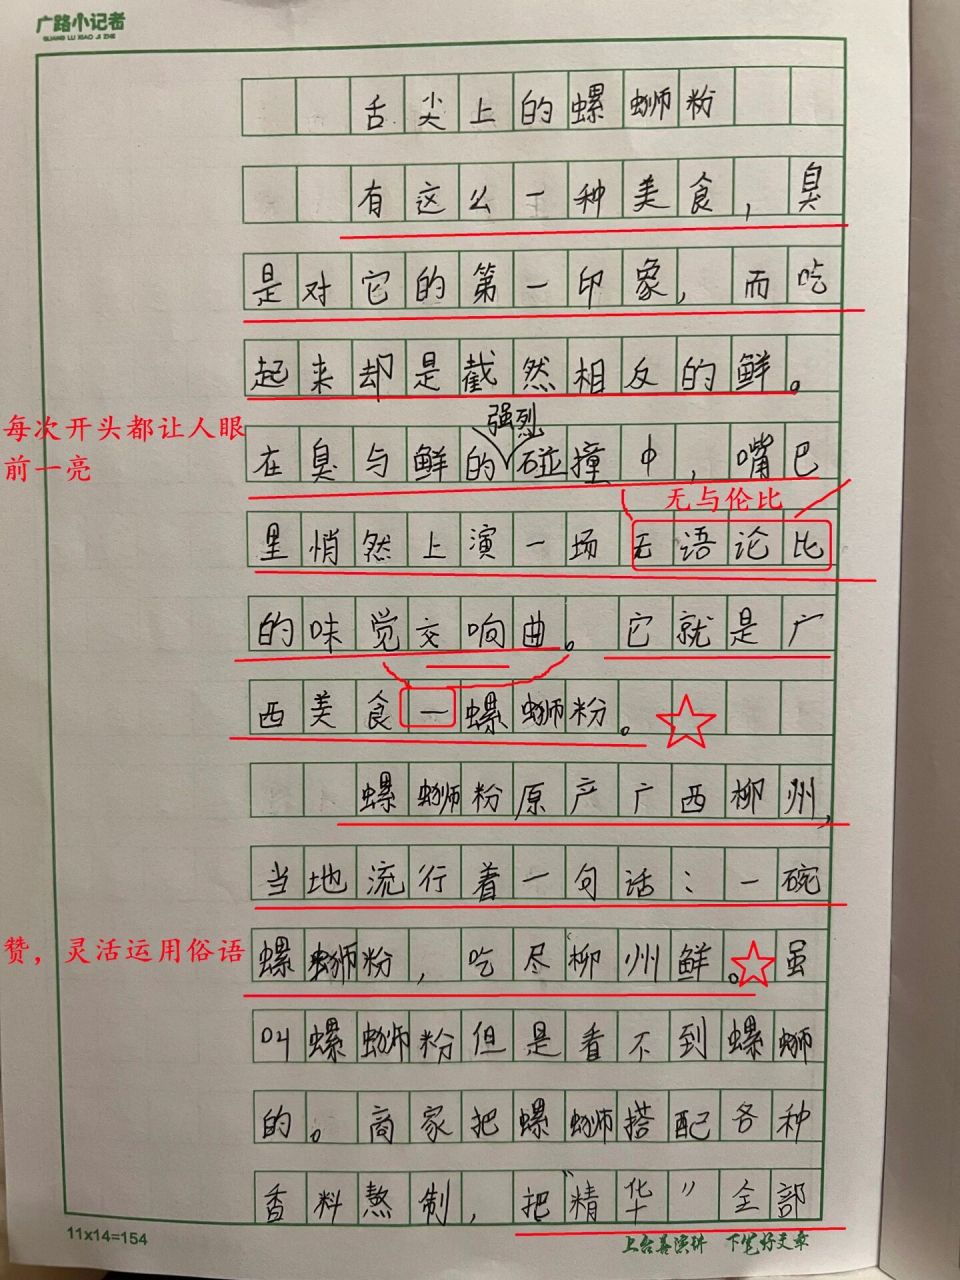 广路小记者
GUANG LU XIAO JI ZHE
舌尖上的螺蛳粉
有这么一种美食，臭
是对它的第一印象，而吃
起来却是截然相反的鲜。
每次开头都让人眼
前一亮
强烈
在臭与鲜的碰撞中，嘴巴
无与伦比
里悄然上演一场无语论比
的味觉交响曲。它就是广
西美食一螺蛳粉。
螺蛳粉原产广西柳州，
当地流行着一句话：一碗
赞，灵活运用俗语
螺蛳粉，吃尽柳州鲜。虽
叫螺蛳粉但是看不到螺蛳
的。商家把螺蛳搭配各种
香料熬制，把“精华”全部
11x14=154
上台善演讲 下笔好文章